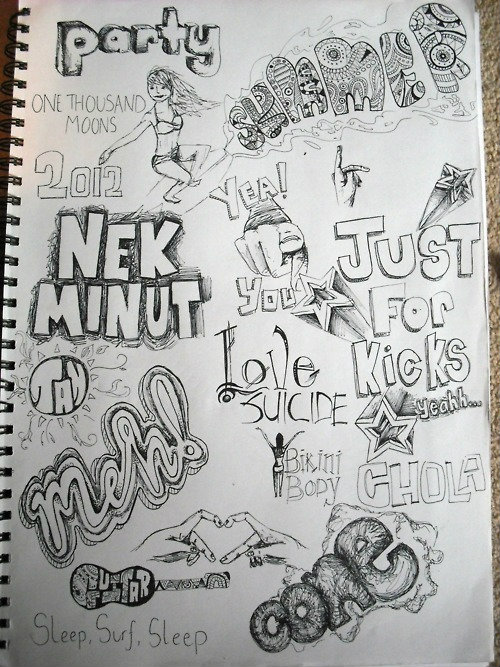 party
ONE THOUSAND
MOONS
SUMMER
2012
YEA!
YOU
NEK
MINUT
JUST
FOR
KICKS
yeahh...
JAN
Love
SUICIDE
meh!
BIKINI
BODY
CHOLA
GUITAR
COME
Sleep, Surf, Sleep